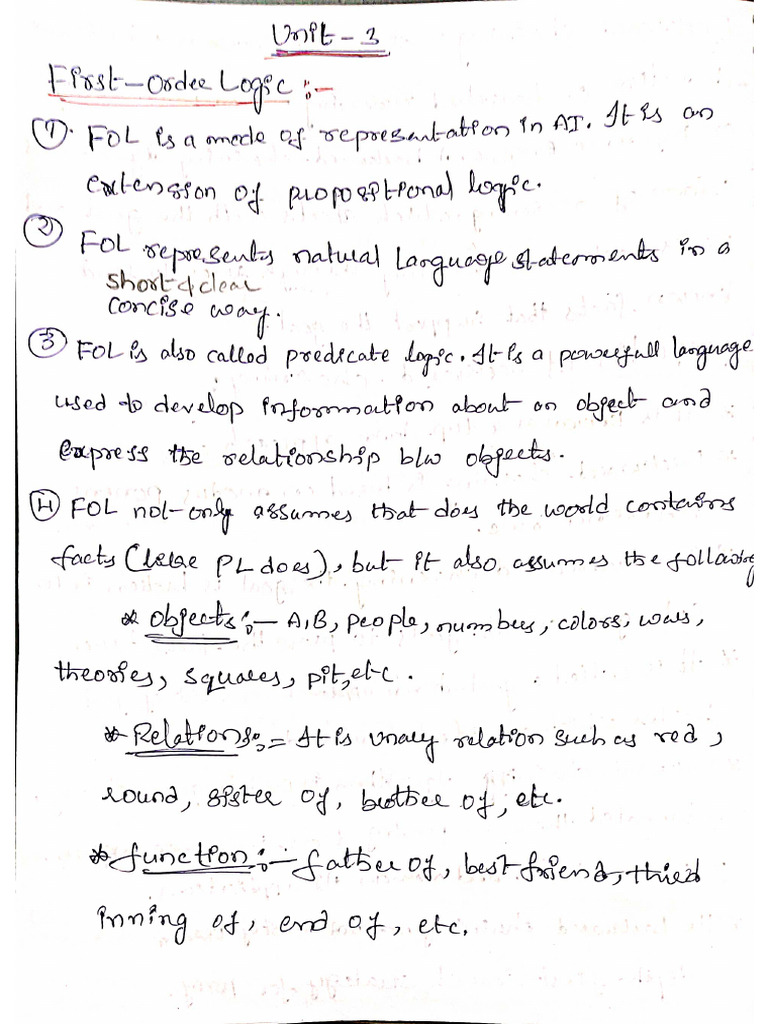 Unit-3
First-Order Logic :-
① FOL is a mode of representation in AI. It is an
extension of propositional logic.
② FOL represents natural language statements in a
short & clear
concise way.
③ FOL is also called predicate logic. It is a powerfull language
used to develop information about an object and
express the relationship b/w objects.
④ FOL not-only assumes that does the world contains
facts (like PL does), but it also assumes the following
* Objects :- A,B, people, numbers, colors, wars,
theories, squares, pit, etc.
* Relations := It is unary relation such as red,
round, sister of, brother of, etc.
* function :- father of, best friend, third
inning of, end of, etc.